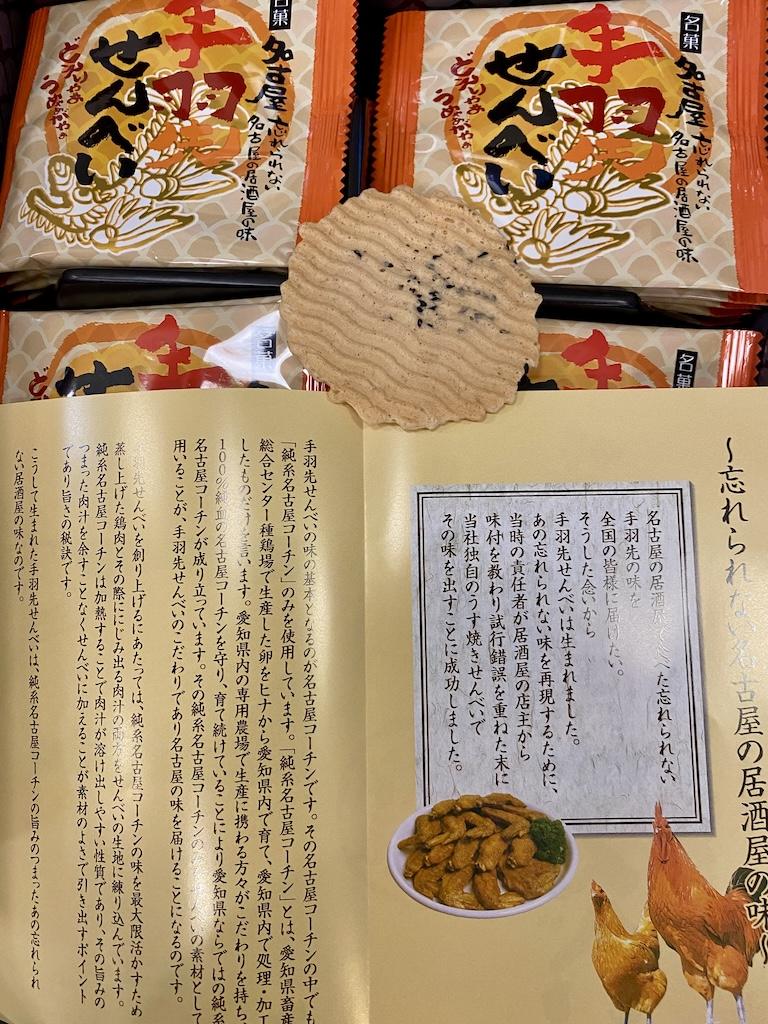 名菓
名古屋
手羽先
せんべい
忘れられない
名古屋の居酒屋の味
どえりゃあ
うみゃあがやぁ
名菓
名古屋
手羽先
せんべい
忘れられない
名古屋の居酒屋の味
どえりゃあ
うみゃあがやぁ
名菓
手羽
名菓
手
〜忘れられない名古屋の居酒屋の味〜
名古屋の居酒屋で食べた忘れられない
手羽先の味を
全国の皆様に届けたい。
そうした念いから
手羽先せんべいは生まれました。
あの忘れられない味を再現するために、
当時の責任者が居酒屋の店主から
味付を教わり試行錯誤を重ねた末に
当社独自のうす焼きせんべいで
その味を出すことに成功しました。
手羽先せんべいの味の基本となるのが名古屋コーチンです。その名古屋コーチンの中でも
「純系名古屋コーチン」のみを使用しています。「純系名古屋コーチン」とは、愛知県畜産
総合センター種鶏場で生産した卵をヒナから愛知県内で育て、愛知県内で処理・加工
したものだけを言います。愛知県内の専用農場で生産に携わる方々がこだわりを持ち、
100%純血の名古屋コーチンを守り、育て続けていることにより愛知県ならではの純系
名古屋コーチンが成り立っています。その純系名古屋コーチンの
せんべいの素材として
用いることが、手羽先せんべいのこだわりであり名古屋の味を届けることになるのです。
羽先せんべいを創り上げるにあたっては、純系名古屋コーチンの味を最大限活かすため
蒸し上げた鶏肉とその際ににじみ出る肉汁の両方をせんべいの生地に練り込んでいます。
純系名古屋コーチンは加熱することで肉汁が溶け出しやすい性質であり、その旨みの
つまった肉汁を余すことなくせんべいに加えることが素材のよさを引き出すポイント
であり旨さの秘訣です。
こうして生まれた手羽先せんべいは、純系名古屋コーチンの旨みのつまったあの忘れられ
ない居酒屋の味なのです。